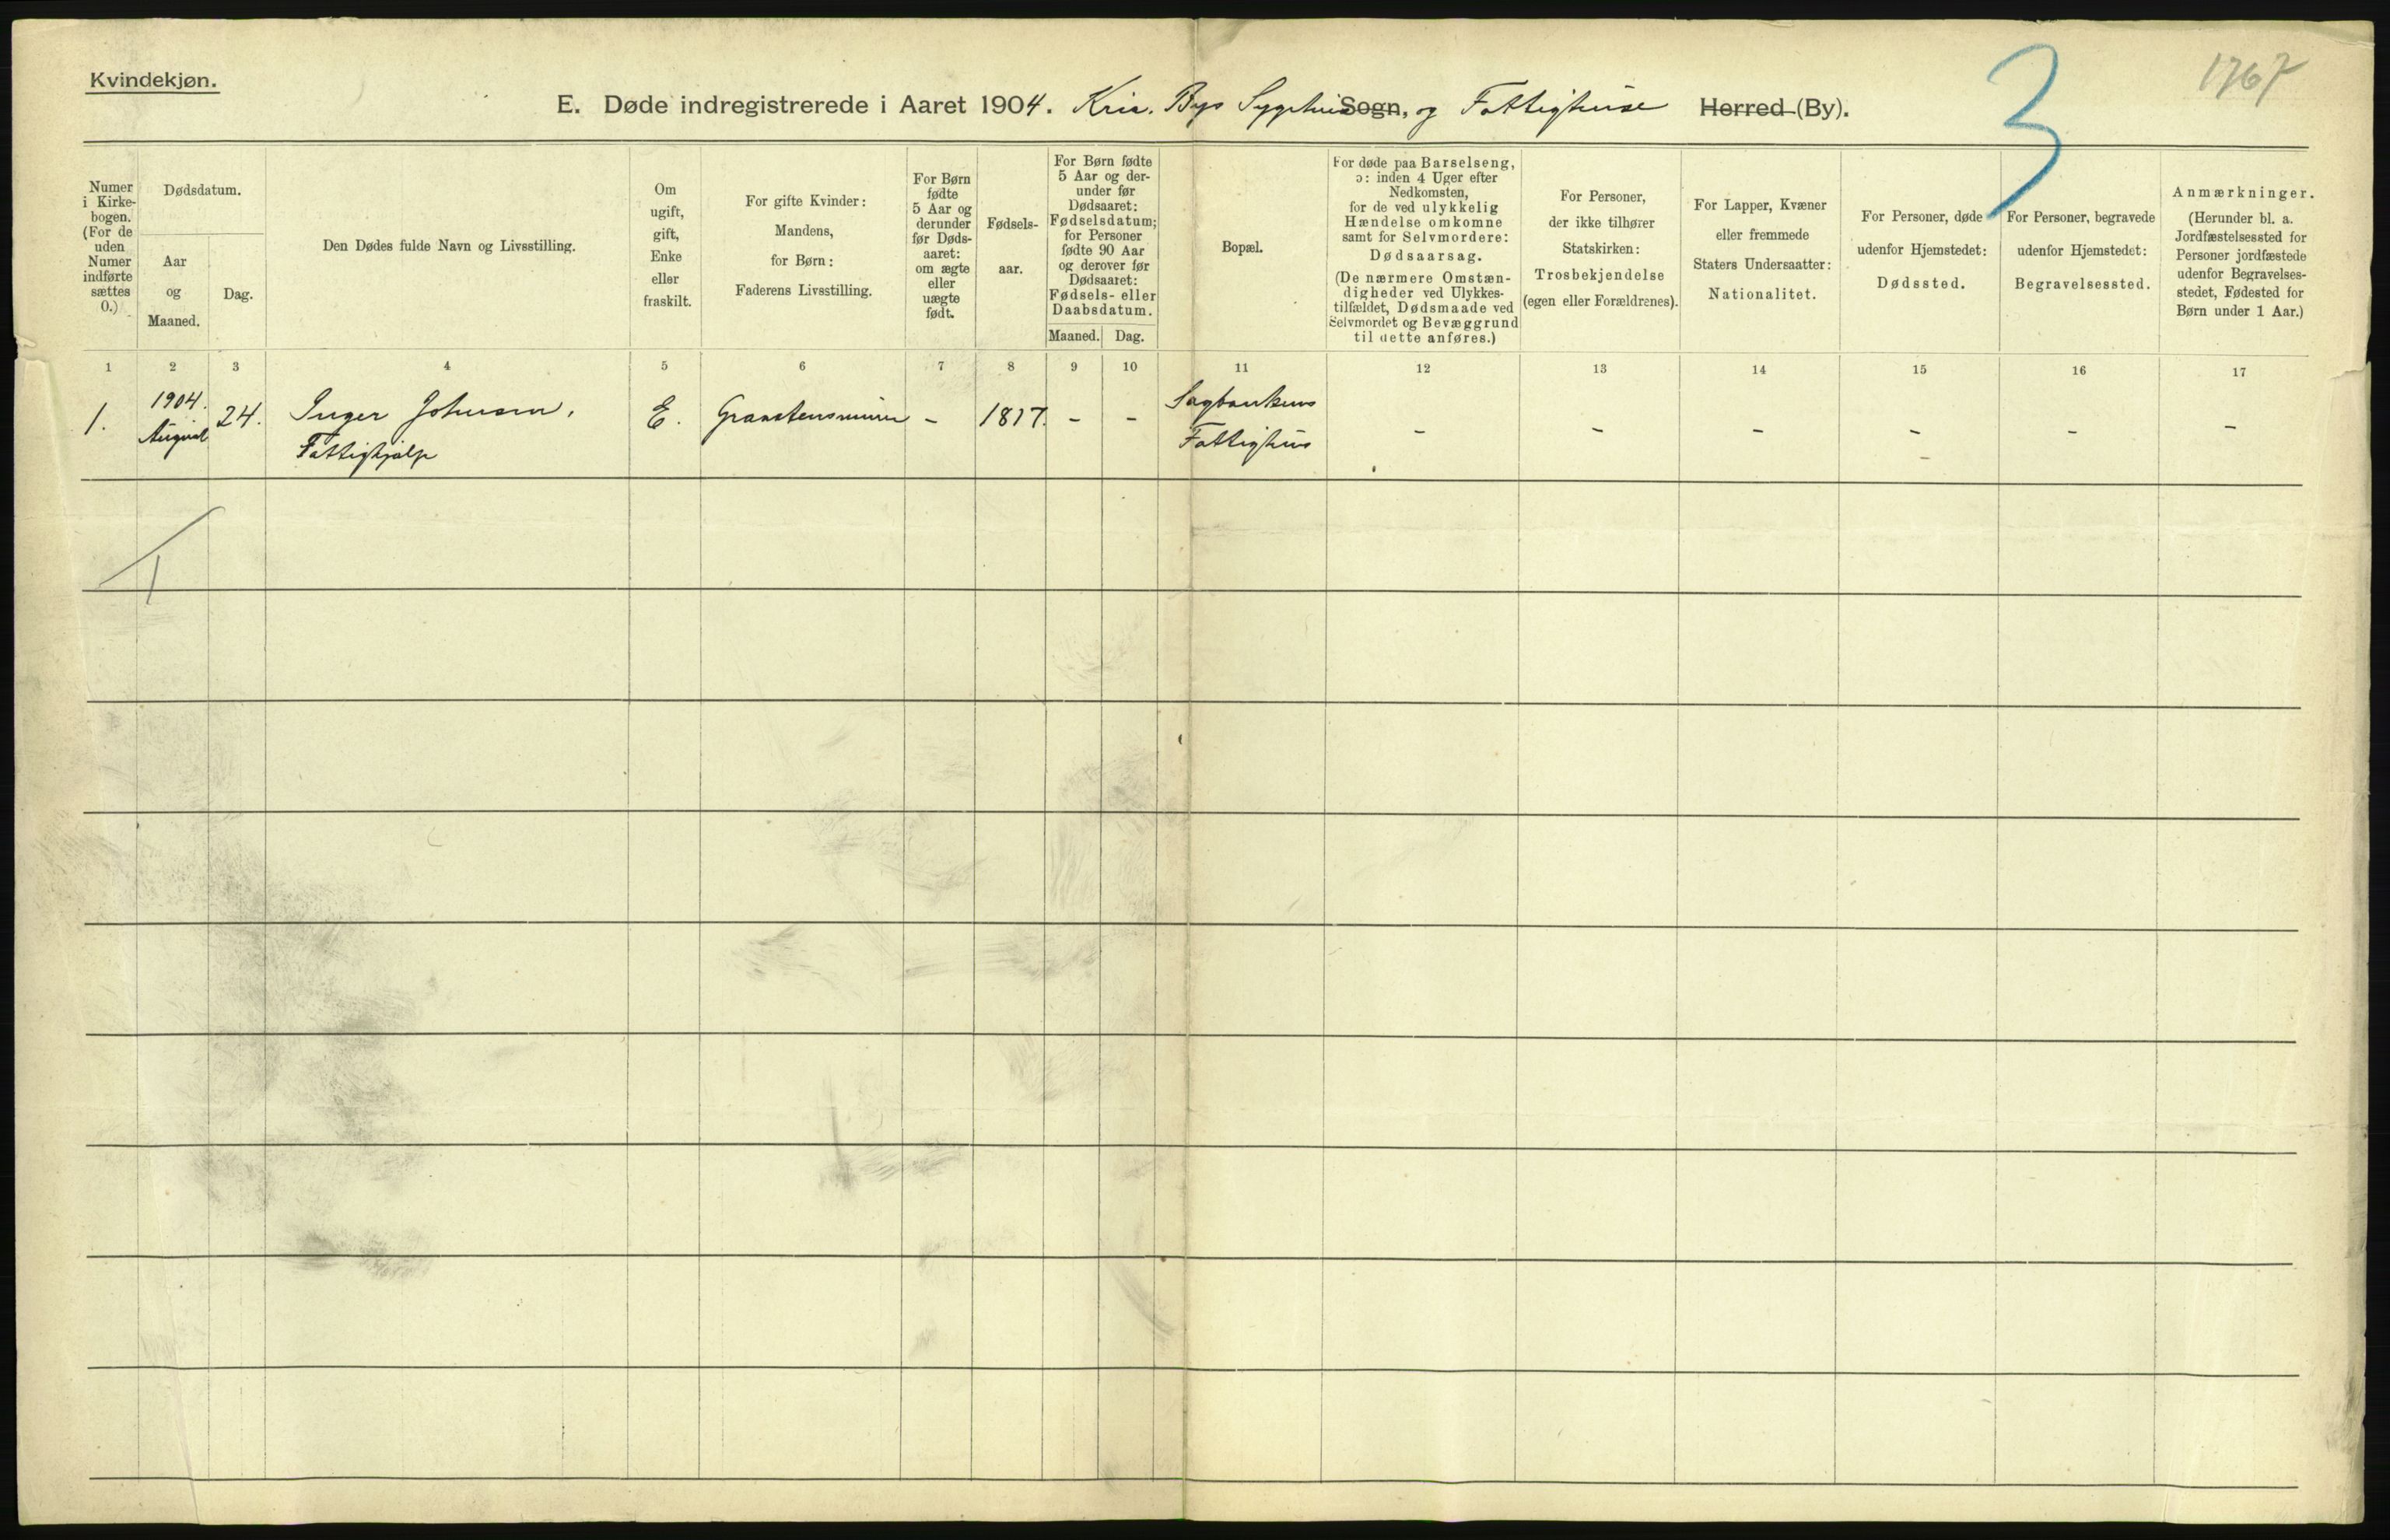 Kvindekjøn.
1767
3
E. Døde indregistrerede i Aaret 1904. Kria. Bys Sygehus Sogn, og Fattighuse Herred (By).
Numer
i Kirke-
bogen.
(For de
uden
Numer
indførte
sættes
0.)
Dødsdatum.
Aar
og
Maaned.
Dag.
Den Dødes fulde Navn og Livsstilling.
Om
ugift,
gift,
Enke
eller
fraskilt.
For gifte Kvinder:
Mandens,
for Børn:
Faderens Livsstilling.
For Børn
fødte
5 Aar og
derunder
før Døds-
aaret:
om ægte
eller
uægte
født.
Fødsels-
aar.
For Børn fødte
5 Aar og der-
under før
Dødsaaret:
Fødselsdatum;
for Personer
fødte 90 Aar
og derover før
Dødsaaret:
Fødsels- eller
Daabsdatum.
Maaned. Dag.
Bopæl.
For døde paa Barselseng,
ɔ: inden 4 Uger efter
Nedkomsten,
for de ved ulykkelig
Hændelse omkomne
samt for Selvmordere:
Dødsaarsag.
(De nærmere Omstæn-
digheder ved Ulykkes-
tilfældet, Dødsmaade ved
Selvmordet og Bevæggrund
til dette anføres.)
For Personer,
der ikke tilhører
Statskirken:
Trosbekjendelse
(egen eller Forældrenes).
For Lapper, Kvæner
eller fremmede
Staters Undersaatter:
Nationalitet.
For Personer, døde
udenfor Hjemstedet:
Dødssted.
For Personer, begravede
udenfor Hjemstedet:
Begravelsessted.
Anmærkninger.
(Herunder bl. a.
Jordfæstelsessted for
Personer jordfæstede
udenfor Begravelses-
stedet, Fødested for
Børn under 1 Aar.)
1 2 3 4 5 6 7 8 9 10 11 12 13 14 15 16 17
1. 1904. August 24. Inger Johnsen, E. - 1817. - - Sagbankens - - - - - -
Fattighjælp Fattighus
1